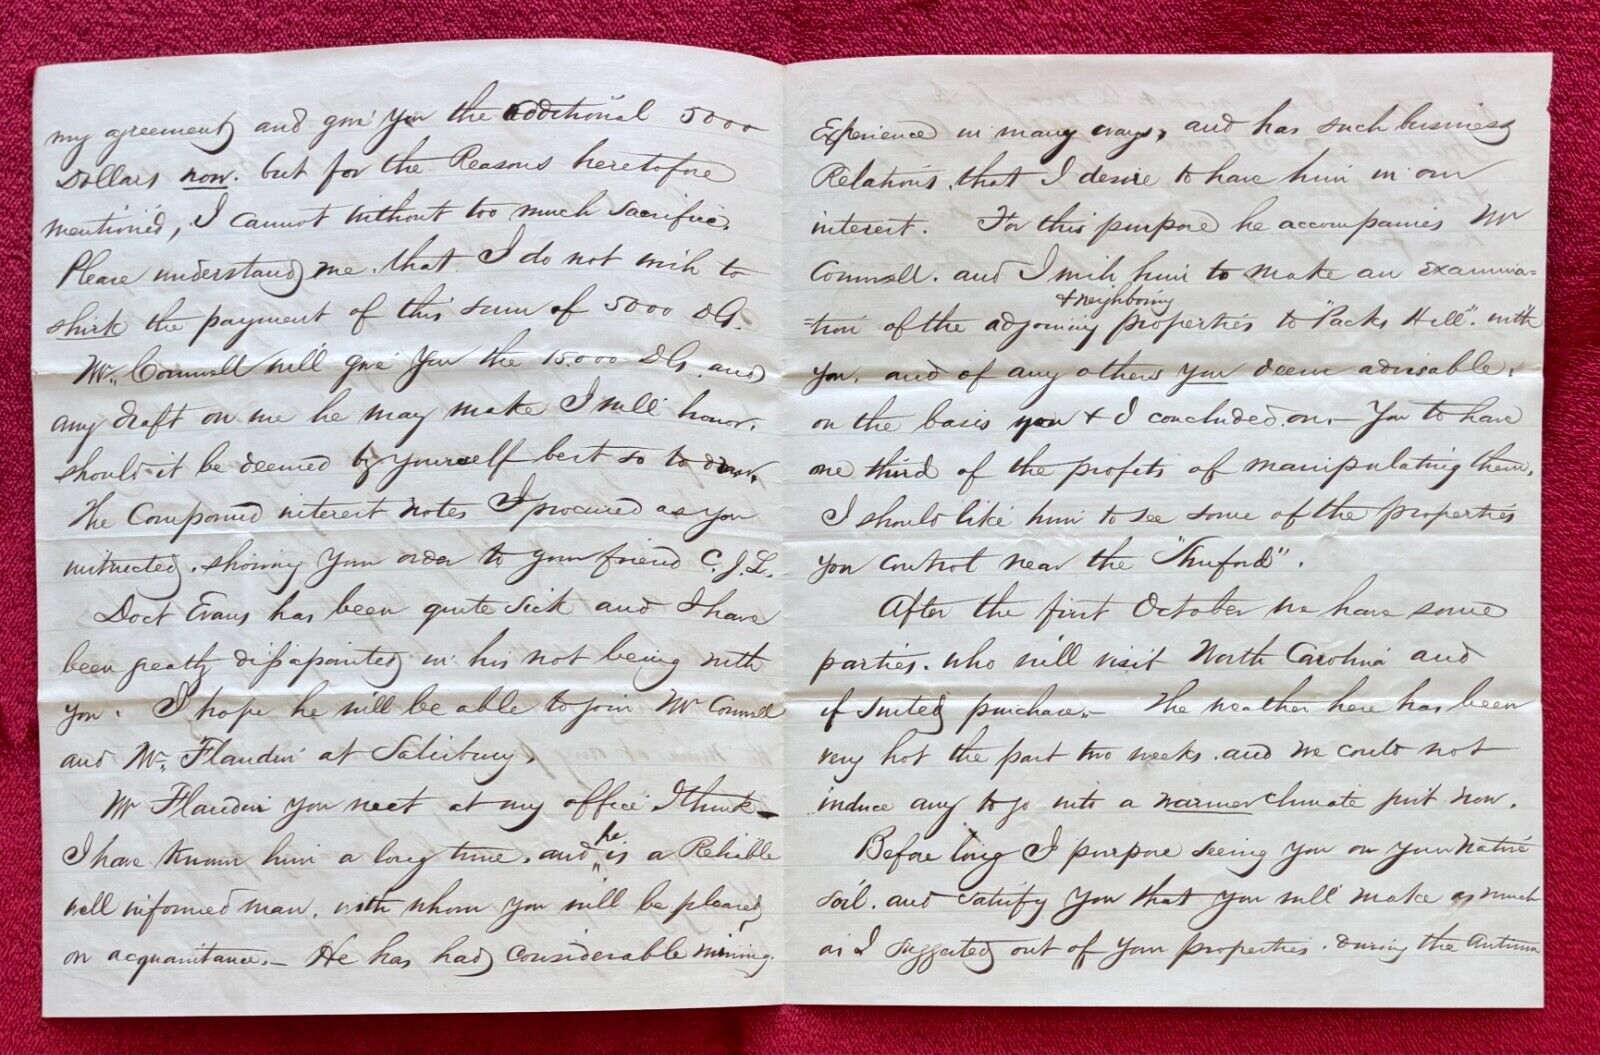 my agreement and give you the additional 5000
Dollars now. but for the Reasons heretofore
mentioned, I cannot without too much sacrifice.
Please understand me. that I do not wish to
shirk the payment of this sum of 5000 Dls.
Mr. Cornwell will give you the 15.000 Dls. and
any draft on me he may make I will honor.
should it be deemed by yourself best so to draw.
The Compound interest notes I procured as you
instructed. showing your order to your friend C. J. L.
Doct Evans has been quite sick and I have
been greatly dissapointed in his not being with
you. I hope he will be able to join Mr Cornwell
and Mr. Flandin at Salisbury.
Mr Flandin you met at my office I think
I have known him a long time. and he is a Reliable
well informed man. with whom you will be pleased
on acquaintance. - He has had considerable mining
Experience in many ways, and has such business
Relations. that I desire to have him in our
interest. For this purpose he accompanies Mr
Cornwell. and I wish him to make an examina=
=tion of the adjoining & neighboring properties to "Packs Hill". with
you. and of any others you deem advisable.
on the basis you & I concluded on. - You to have
one third of the profits of manipulating them.
I should like him to see some of the properties
you control near the "Shuford".
After the first October we have some
parties. who will visit North Carolina and
if suited purchase. - The weather here has been
very hot the past two weeks. and we could not
induce any to go into a warmer climate just now.
Before long I purpose seeing you on your native
soil. and satisfy you that you will make as much
as I suggested out of your properties. during the Autumn